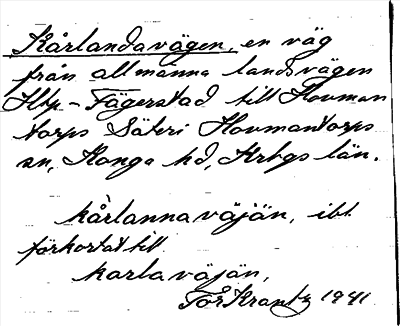 Kårlandavägen, en väg
från allmänna landsvägen
Htp - Fägerstad till Hovman
torps Säteri Hovmantorps
sn, Konga hd, Krbgs län.
kårlannaväjän, ibl.
förkortat till
karlaväjän,
Tor Krantz 1941